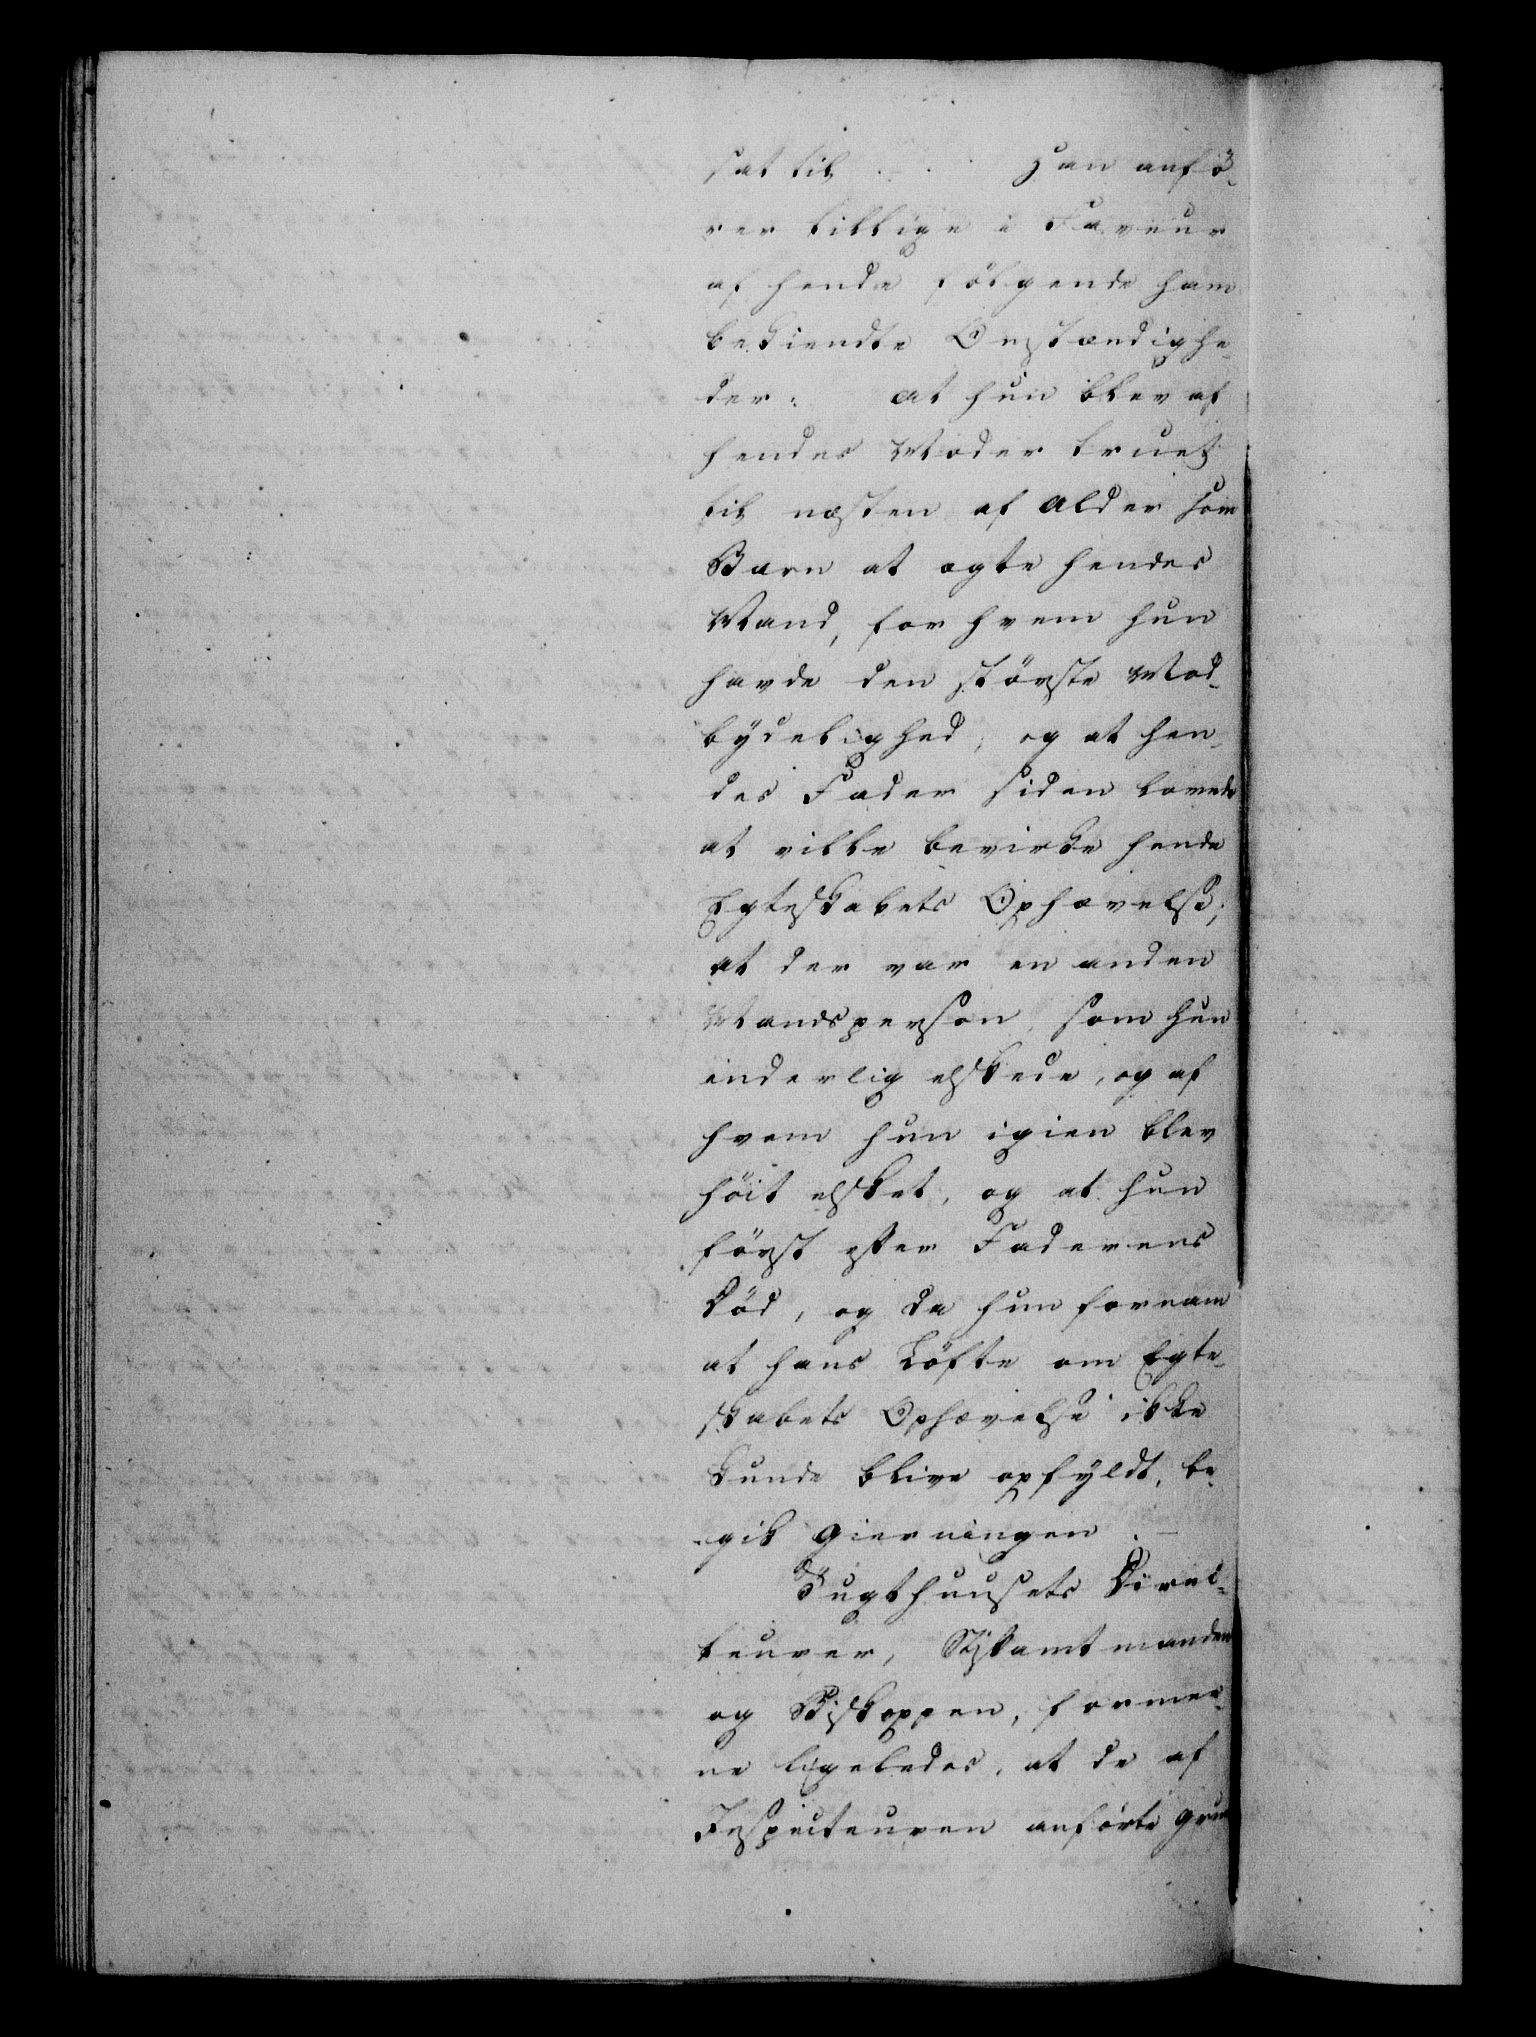 sat til . . Han anfö-
rer tillige i Faveur
af hende følgende ham
bekiendte Omstændighe-
der: at hun blev af
hendes Moder truet
til næsten af Alder som
Barn at ægte hendes
Mand, for hvem hun
havde den største Mod-
bydelighed; og at hen-
des Fader siden lovede
at ville bevirke hende
Egteskabets Ophævelse;
at der var en anden
Mandsperson som hun
inderlig elskede, og af
hvem hun igien blev
höit elsket, og at hun
först efter Faderens
Död, og da hun fornam
at hans Löfte om Egte-
skabets Ophævelse ikke
kunde blive opfyldt, be-
gik Gierningen. -
Tugthuusets Direk-
teurer, Stiftamtmanden
og Biskoppen, formee-
ne ligeledes, at de af
Inspecteuren anførte Grun